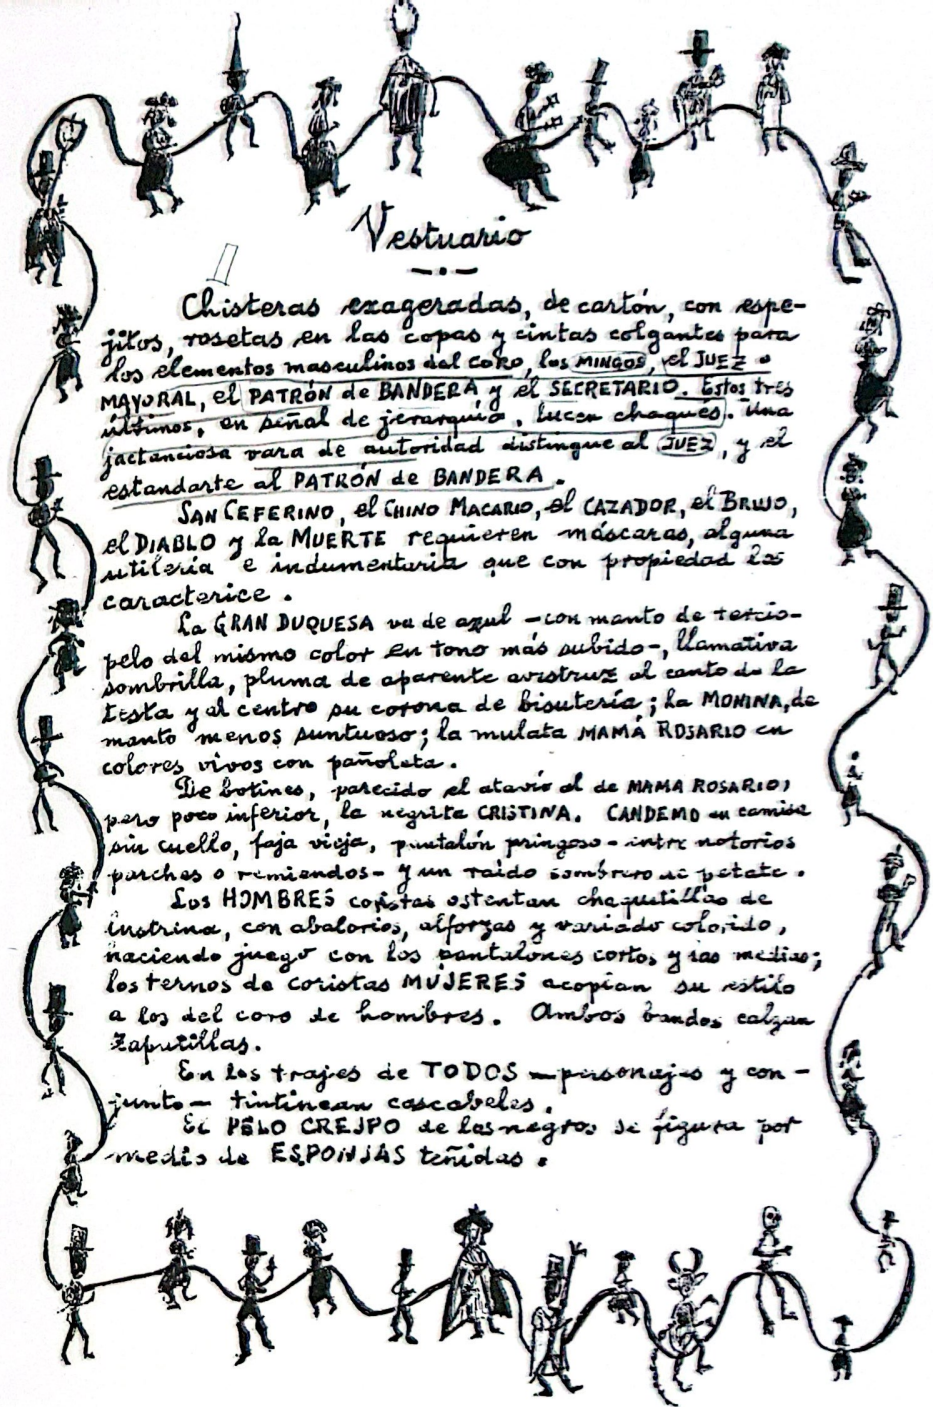 Vestuario
Chisteras exageradas, de cartón, con espe-
jitos, rosetas en las copas y cintas colgantes para
los elementos masculinos del coro, los MINGOS, el JUEZ o
MAYORAL, el PATRÓN de BANDERA y el SECRETARIO. Estos tres
últimos, en señal de jerarquía, lucen chaqués. Una
jactanciosa vara de autoridad distingue al JUEZ, y el
estandarte al PATRÓN de BANDERA.
SAN CEFERINO, el CHINO MACARIO, el CAZADOR, el BRUJO,
el DIABLO y la MUERTE requieren máscaras, alguna
utilería e indumentaria que con propiedad los
caracterice.
La GRAN DUQUESA va de azul -con manto de tercio-
pelo del mismo color en tono más subido-, llamativa
sombrilla, pluma de aparente avestruz al canto de la
testa y al centro su corona de bisutería; la MONINA, de
manto menos suntuoso; la mulata MAMÁ ROSARIO en
colores vivos con pañoleta.
De botines, parecido el atavío al de MAMA ROSARIO,
pero poco inferior, la negrita CRISTINA. CANDEMO en camisa
sin cuello, faja vieja, pantalón pringoso - entre notorios
parches o remiendos - y un raído sombrero de petate.
Los HOMBRES coristas ostentan chaquetillas de
lustrina, con abalorios, alforzas y variado colorido,
haciendo juego con los pantalones cortos y las medias;
los ternos de coristas MUJERES acopian su estilo
a los del coro de hombres. Ambos bandos calzan
zapatillas.
En los trajes de TODOS -personajes y con-
junto- tintinean cascabeles.
El PELO CRESPO de los negros se figura por
medio de ESPONJAS teñidas.